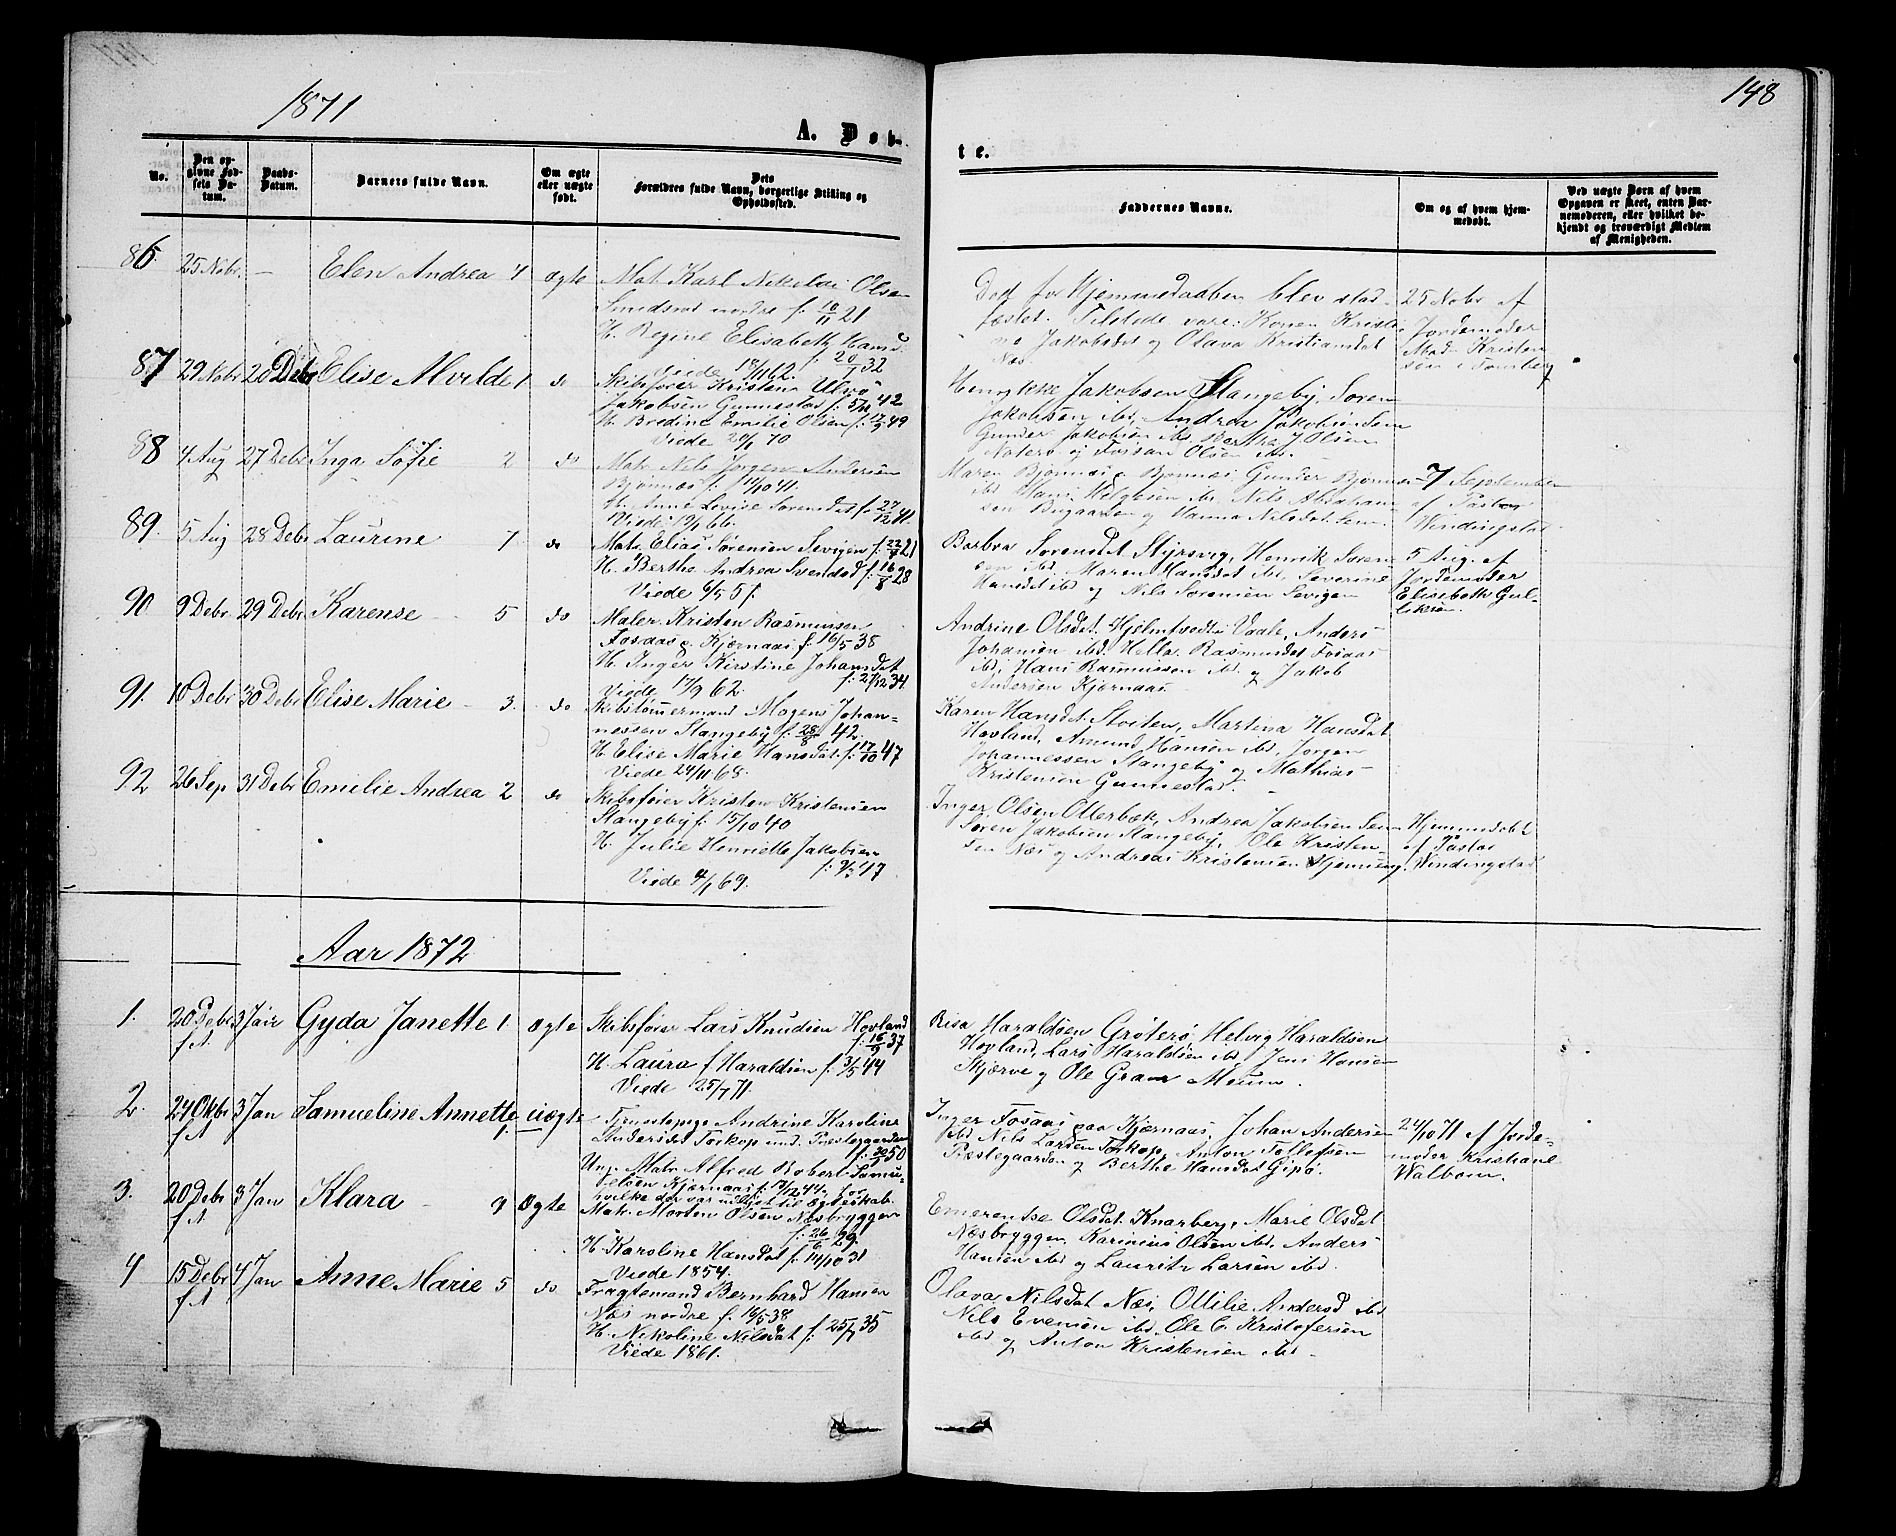 1871
148
A. Døb-
te.
No.
Den op-
givne Fød-
sels Da-
tum.
Daabs-
Datum.
Barnets fulde Navn.
Om ægte
eller uægte
født.
Dets
Forældres fulde Navn, borgerlige Stilling og
Opholdssted.
Faddernes Navne.
Om og af hvem hjem-
medøbt.
Ved uægte Børn af hvem
Opgaven er skeet, enten Bar-
nemoderen, eller hvilket be-
kjendt og troværdigt Medlem
af Menigheden.
86. 25 Nobr. — Elen Andrea 4 ægte
Mat. Karl Nikolai Olsen
Smidsrød nordre f. 10/11 21
H. Regine Elisabeth Hansd.
f. 20/1 32
Viede 18/11 62.
Død før Hjemmedaaben blev stad-
fæstet. Tilstede vare: Konen Kristi-
ne Jakobsdat og Olava Kristiansdat
Næs
25 Nobr af
Jordemoder
Mad. Kristen-
sen i Tønsberg
87 29 Nobr 20 Debr Elise Alvilde 1 do
Skibsfører Kristen Ulvø
Jakobsen Gunnestad f. 5/11 42
H. Bredine Emilie Olsen f. 17/9 49
Viede 20/1 70
Jakobsen Stangeby, Søren
Jakobsen ibd. Andrea Jakobsen Sem
Gunder Jakobsen ibd, J. Olsen
Nøterø og Olsen ibd.
88 4 Aug 27 Debr Inga Sofie 2 do
Matr. Nels Jørgen Andersen
Bjønnæs f. 11/10 41.
H. Anne Lovise Sørensdat f. 27/12 41.
Viede 19/1 66.
Maren Bjønnæs, Bjønnæs Gunder Bjønnæs
ibd Hans Helgesen ibd, Nils Abraham-
sen og Hanna Nilsdat Sem.
7 September
af Pastor
Windingstad
89. 5 Aug 28 Debr Laurine 7 do
Matr. Elias Sørensen Sevigen f. 22/7 21
H. Berthe Andrea Svendsd f. 16/8 28
Viede 6/5 51.
Barbra Sørensdt Styrsvig, Henrik Søren-
sen ibd. Maren Hansdat ibd, Severine
Hansdat ibd og Nils Sørensen Sevigen
5 Aug. af
Jordemoder
Elisebeth Gul-
liksen.
90 9 Debr. 29 Debr. Karense 5 do
Maler Kristen Rasmussen
Fosaas p. Kjærnaas f. 16/5 38
H. Inger Kirstine Johansdat
f. 27/12 34.
Viede 17/9 62.
Andrine Olsdat. Hjelmtvedt i Vaale, Anders
Johansen ibd. Hella Rasmusdat Fosaas
ibd, Hans Rasmussen ibd. og Jakob
Andersen Kjærnaas
91. 10 Debr 30 Debr Elise Marie 3. do
Skibstømmermand Mogens Johan-
nessen Stangeby f. 28/8 42.
H. Elise Marie Hansdat. f. 17/10 47
Viede 24/11 68.
Karen Hansdat Stoiten, Martina Hansdat
Hovland, Amund Hansen ibd, Jørgen
Johannessen Stangeby og Mathias
Kristensen Gunnestad.
92 26 Sep 31 Debr Emilie Andrea 2 do
Skibsfører Kristen Kristensen
Stangeby f. 15/10 40
H. Julie Henriette Jakobsen
f. 9/3 47
Viede 4/1 69.
Inger Olsen Otterbæk, Andrea Jakobsen Sem
Søren Jakobsen Stangeby, Ole Kristen-
sen Næs og Andreas Kristensen Hjemseng.
Hjemmedøbt
af Pastor
Windingstad
Aar 1872
1. 20 Debr f.A. 3 Jan Gyda Janette 1. Ægte
Skibsfører Lars Knudsen Hovland
f. 16/9 37
H. Laura f Haraldsen f. 31/5 44
Viede 25/7 71.
Risa Haraldsen Grøterø, Helvig Haraldsen
Hovland, Lars Haraldsen ibd Jens Hansen
Skjærve og Ole Gram Meum.
2. 24 Oktbr f.A 3 Jan Samueline Annette 1. uægte
Tjenestepige Andrine Karoline
Andersdat Torkop und. Præstegaarden
f. 20/1 50
Ungk. Matr. Alfred Robert Samu-
elsen Kjærnaas f. 17/12 44, for
hvilke der var udlyst til Ægteskab.
Inger Fosaas paa Kjærnaas, Johan Andersen
ibd Nils Larsen Torkop, Anton Tollefsen
Præstegaarden og Berthe Hansdat Gipø.
24/10 71 af Jorde-
moder Kristiane
Walbom.
3. 20 Debr f.A. 3 Jan Klara 9 Ægte
Matr. Morten Olsen Næsbryggen
f. 26/6 29.
H. Karoline Hansdat f. 14/10 31
Viede 1854.
Emerentse Olsdat. Knarberg, Marie Olsdat
Næsbryggen, Karinius Olsen ibd, Anders
Hansen ibd og Lauritz Larsen ibd.
4 15 Debr f.A 4 Jan Anne Marie 5 do.
Fragtemand Bernhard Hansen
Næs nordre f. 16/5 38
H. Nikoline Nilsdat f. 25/7 35
Viede 1861.
Olava Nilsdat Næs, Ottilie Andersd ibd
Nils Evensen ibd, Ole C. Kristofersen
ibd og Anton Kristensen ibd.